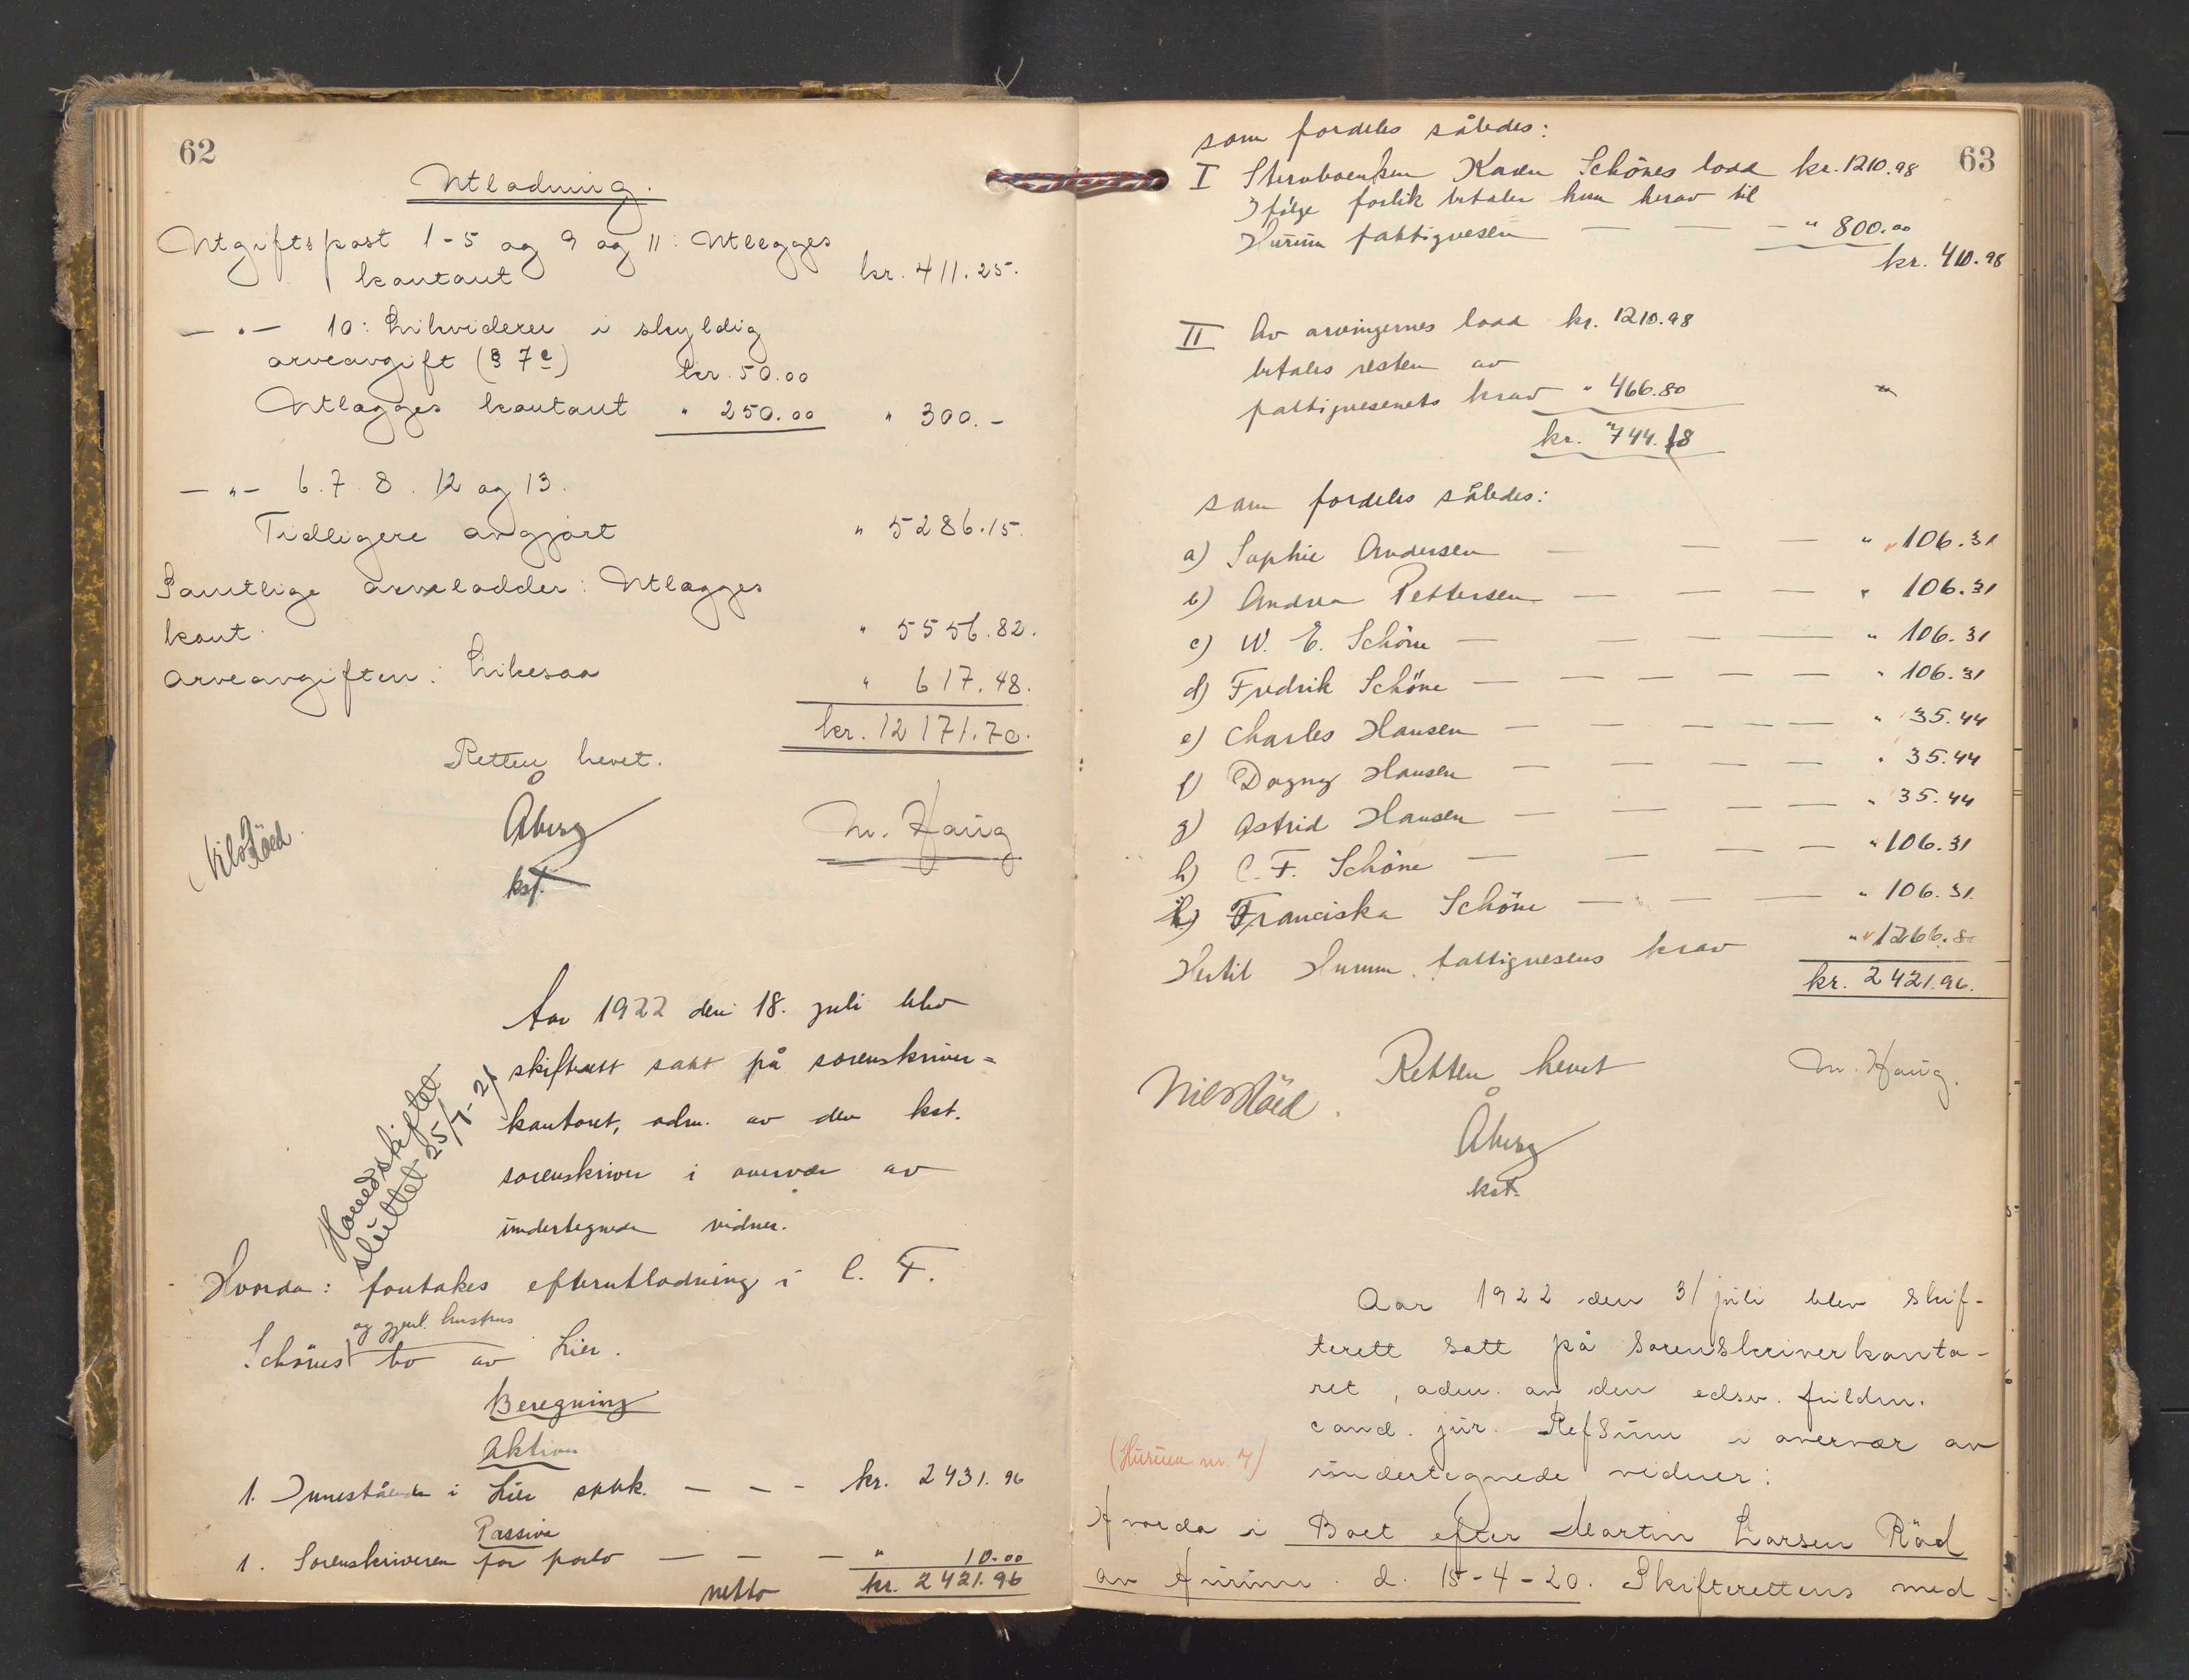 62
Utlodning.
Utgiftspost 1-5 og 9 og 11: Utlegges
kontant kr. 411.25.
— „ — 10: Likviderer i skyldig
arveavgift (§ 7e) kr. 50.00
Utlægges kontant " 250.00 " 300.-
— „ — 6. 7. 8. 12 og 13.
Tidligere avgjort " 5286.15.
Samtlige arvelodder: Utlægges
kont. " 5556.82.
Arveavgiften: Likesaa " 617.48.
kr. 12171.70.
Retten hevet.
Nils Röed. Åberg M. Haug
kst.
Aar 1922 den 18. juli blev
skifterett satt på sorenskriver=
kontoret, adm. av den kst.
sorenskriver i overvær av
undertegnede vidner.
Hovedskiftet
sluttet 25/7-21
Hvorda: foretakes efterutlodning i C. F.
og gjenl. hustrus
Schönes bo av Lier.
Beregning
Aktiva
1. Innestående i Lier spbk. — — - kr. 2431.96
Passiva
1. Sorenskriveren for porto — — — " 10.00
netto kr. 2421.96
63
som fordeles således:
I Stervboenken Karen Schönes lodd kr. 1210.98
Ifölge forlik betaler hun herav til
Hurum fattigvesen — — — " 800.00
kr. 410.98
II Av arvingernes lodd kr. 1210.98
betales resten av
fattigvesenets krav " 466.80
kr. 744.18
som fordeles således:
a) Sophie Andersen — — — " 106.31
b) Andrea Pettersen — — — " 106.31
c) W. E. Schöne — — — " 106.31
d) Fredrik Schöne — — — — — " 106.31
e) Charles Hansen — — — — — " 35.44
f) Dagny Hansen — — — — " 35.44
g) Astrid Hansen — — — — " 35.44
h) C. F. Schöne — — — — " 106.31
i) Franciska Schöne — — — — " 106.31.
Hertil Hurum fattigvesens krav " 1266.80
kr. 2421.96.
Retten hevet
Nils Röed. M. Haug.
Åberg
kst.
Aar 1922 den 31 juli blev skif-
terett satt på sorenskriverkonto-
ret, adm. av den edsv. fuldm.
cand. jur. Refsum i overvær av
(Hurum nr. 7)
undertegnede vidner:
Hvorda i Boet efter Martin Larsen Röd
av Hurum. d. 15-4-20. Skifterettens med-